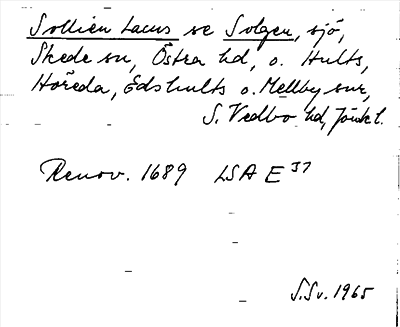 Sollien Lacus se Solgen, sjö,
Skede sn, Östra hd, o. Hults,
Höreda, Edshults o. Mellby snr,
S. Vedbo hd, Jönk l.
Renov. 1689 LSA E 37
S.Sv. 1965